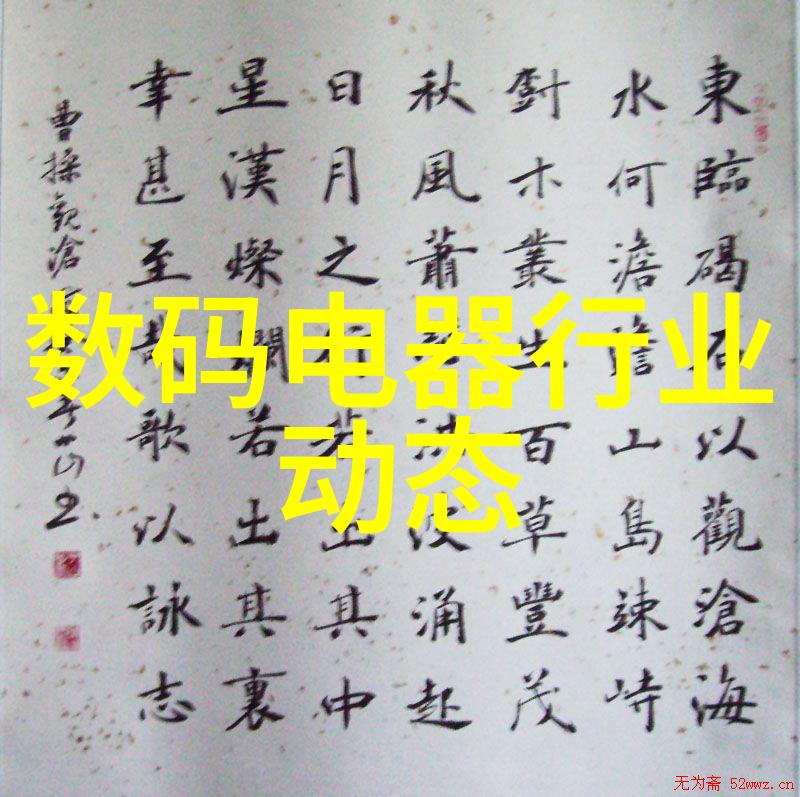 東臨碣石以觀滄海
水何澹澹山島竦峙
樹木叢生百草豐茂
秋風蕭瑟洪波涌起
日月之行若出其中
星漢燦爛若出其裏
幸甚至哉歌以詠志
曹操觀滄
数码电器行业
动态
无为斋 52wwz.cn